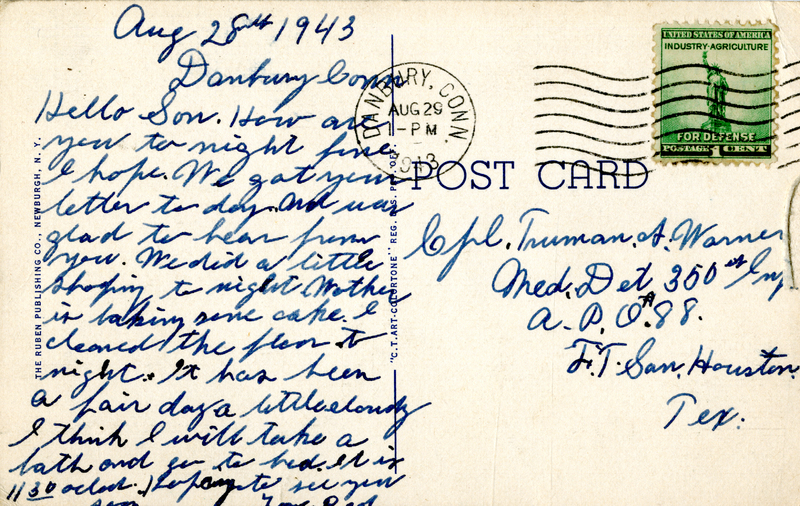 Aug 28th 1943
Danbury Conn
Hello Son. How are
you to night fine
I hope. We got your
letter to day. And was
glad to hear from
you. We did a little
shoping to night. Mother
is baking some cake. I
cleaned the floor to
night. It has been
a fair day a little cloudy
I think I will take a
bath and go to bed. It is
11 30 oclock. Hoping to see you
soon
THE RUBEN PUBLISHING CO., NEWBURGH, N. Y.
"C.T. ART-COLORTONE" REG. U.S. PAT. OFF.
DANBURY, CONN.
AUG 29
1-PM
1943
UNITED STATES OF AMERICA
INDUSTRY·AGRICULTURE
FOR DEFENSE
POSTAGE 1 CENT
POST CARD
Cpl. Truman. A. Warner
Med. Det 350st Inf
A. P. O. 88.
FT. San. Houston
Tex.